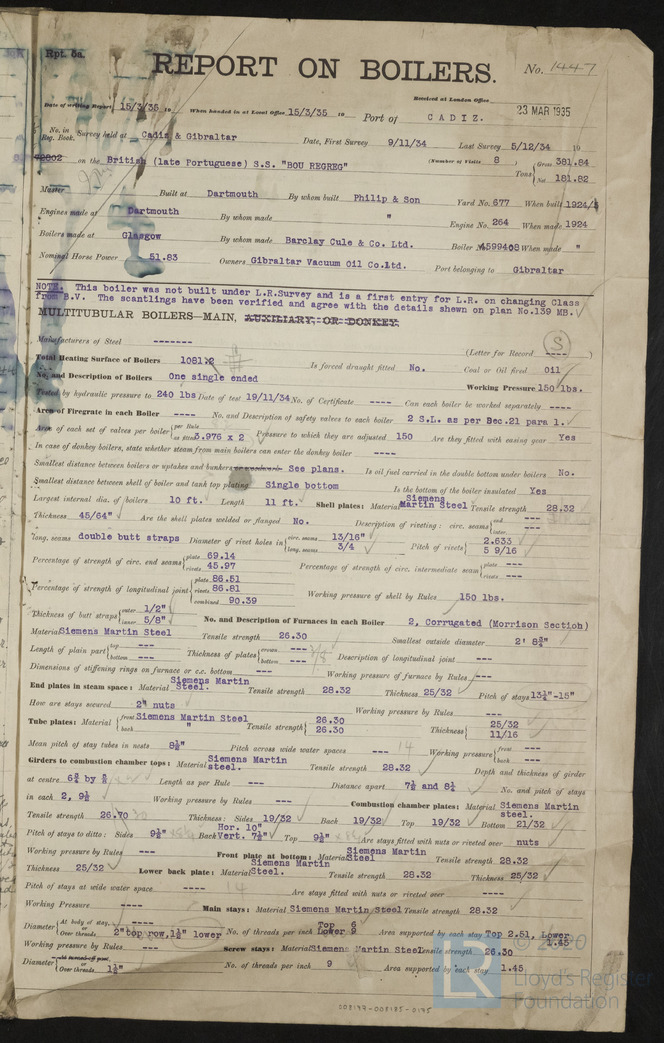 Rpt. 5a.
REPORT ON BOILERS.
No. 1447
Received at London Office 23 MAR 1935
Date of writing Report 15/3/35 19 When handed in at Local Office 15/3/35 19 Port of CADIZ.
No. in Reg. Book. Survey held at Cadiz & Gibraltar Date, First Survey 9/11/34 Last Survey 5/12/34 19
on the British (late Portuguese) S.S. "BOU REGREG" (Number of Visits 8 ) Tons { Gross 381.84 Net 181.82
Master Built at Dartmouth By whom built Philip & Son Yard No. 677 When built 1924/5
Engines made at Dartmouth By whom made " Engine No. 264 When made 1924
Boilers made at Glasgow By whom made Barclay Cule & Co. Ltd. Boiler No. When made "
Nominal Horse Power 51.83 Owners Gibraltar Vacuum Oil Co.Ltd. Port belonging to Gibraltar
NOTE. This boiler was not built under L.R.Survey and is a first entry for L.R. on changing Class
from B.V. The scantlings have been verified and agree with the details shewn on plan No.139 MB.
MULTITUBULAR BOILERS—MAIN, AUXILIARY, OR DONKEY.
Manufacturers of Steel ------- (Letter for Record ---- ) S
Total Heating Surface of Boilers 1081.2 Is forced draught fitted No. Coal or Oil fired Oil
No. and Description of Boilers One single ended Working Pressure 150 lbs.
Tested by hydraulic pressure to 240 lbs Date of test 19/11/34 No. of Certificate ---- Can each boiler be worked separately ----
Area of Firegrate in each Boiler ---- No. and Description of safety valves to each boiler 2 S.L. as per Sec.21 para 1.
Area of each set of valves per boiler { per Rule as fitted 3.976 x 2 Pressure to which they are adjusted 150 Are they fitted with easing gear Yes
In case of donkey boilers, state whether steam from main boilers can enter the donkey boiler ----
Smallest distance between boilers or uptakes and bunkers or woodwork See plans. Is oil fuel carried in the double bottom under boilers No.
Smallest distance between shell of boiler and tank top plating Single bottom Is the bottom of the boiler insulated Yes
Largest internal dia. of boilers 10 ft. Length 11 ft. Shell plates: Material Siemens Martin Steel Tensile strength 28.32
Thickness 45/64" Are the shell plates welded or flanged No. Description of riveting: circ. seams { end --- inter. ---
long. seams double butt straps Diameter of rivet holes in { circ. seams 13/16" long. seams 3/4 Pitch of rivets { 2.633 5 9/16
Percentage of strength of circ. end seams { plate 69.14 rivets 45.97 Percentage of strength of circ. intermediate seam { plate --- rivets ---
Percentage of strength of longitudinal joint { plate 86.51 rivets 86.81 combined 90.39 Working pressure of shell by Rules 150 lbs.
Thickness of butt straps { outer 1/2" inner 5/8" No. and Description of Furnaces in each Boiler 2, Corrugated (Morrison Section)
Material Siemens Martin Steel Tensile strength 26.30 Smallest outside diameter 2' 8¾"
Length of plain part { top --- bottom --- Thickness of plates { crown --- bottom --- Description of longitudinal joint ---
Dimensions of stiffening rings on furnace or c.c. bottom ---- Working pressure of furnace by Rules ---
End plates in steam space: Material Siemens Martin Steel. Tensile strength 28.32 Thickness 25/32 Pitch of stays 13¼"-15"
How are stays secured 2" nuts Working pressure by Rules ---
Tube plates: Material { front Siemens Martin Steel back " Tensile strength { 26.30 26.30 Thickness { 25/32 11/16
Mean pitch of stay tubes in nests 8½" Pitch across wide water spaces --- 14 Working pressure { front --- back ---
Girders to combustion chamber tops: Material Siemens Martin steel. Tensile strength 28.32 Depth and thickness of girder
at centre Length as per Rule --- Distance apart 7½ and 8½ No. and pitch of stays
in each 2, 9½ Working pressure by Rules --- Combustion chamber plates: Material Siemens Martin steel.
Tensile strength 26.30 Thickness: Sides 19/32 Back 19/32 Top 19/32 Bottom 21/32
Pitch of stays to ditto: Sides 9½" Back Hor. 10" Vert. 7½" Top 9½" Are stays fitted with nuts or riveted over nuts
Working pressure by Rules --- Front plate at bottom: Material Siemens Martin Steel Tensile strength 28.32
Thickness 25/32 Lower back plate: Material Siemens Martin Steel. Tensile strength 28.32 Thickness 25/32
Pitch of stays at wide water space ---- 14 Are stays fitted with nuts or riveted over ----
Working Pressure ---- Main stays: Material Siemens Martin Steel Tensile strength 28.32
Diameter { At body of stay, ---- or Over threads 2" top row, 1½" lower No. of threads per inch Top 6 Lower 9 Area supported by each stay Top 2.51, Lower 1.45
Working pressure by Rules --- Screw stays: Material Siemens Martin Steel Tensile strength 26.30
Diameter { At turned off part, or Over threads 1½" No. of threads per inch 9 Area supported by each stay 1.45
© 2020
Lloyd's Register
Foundation
008177-008185-0175